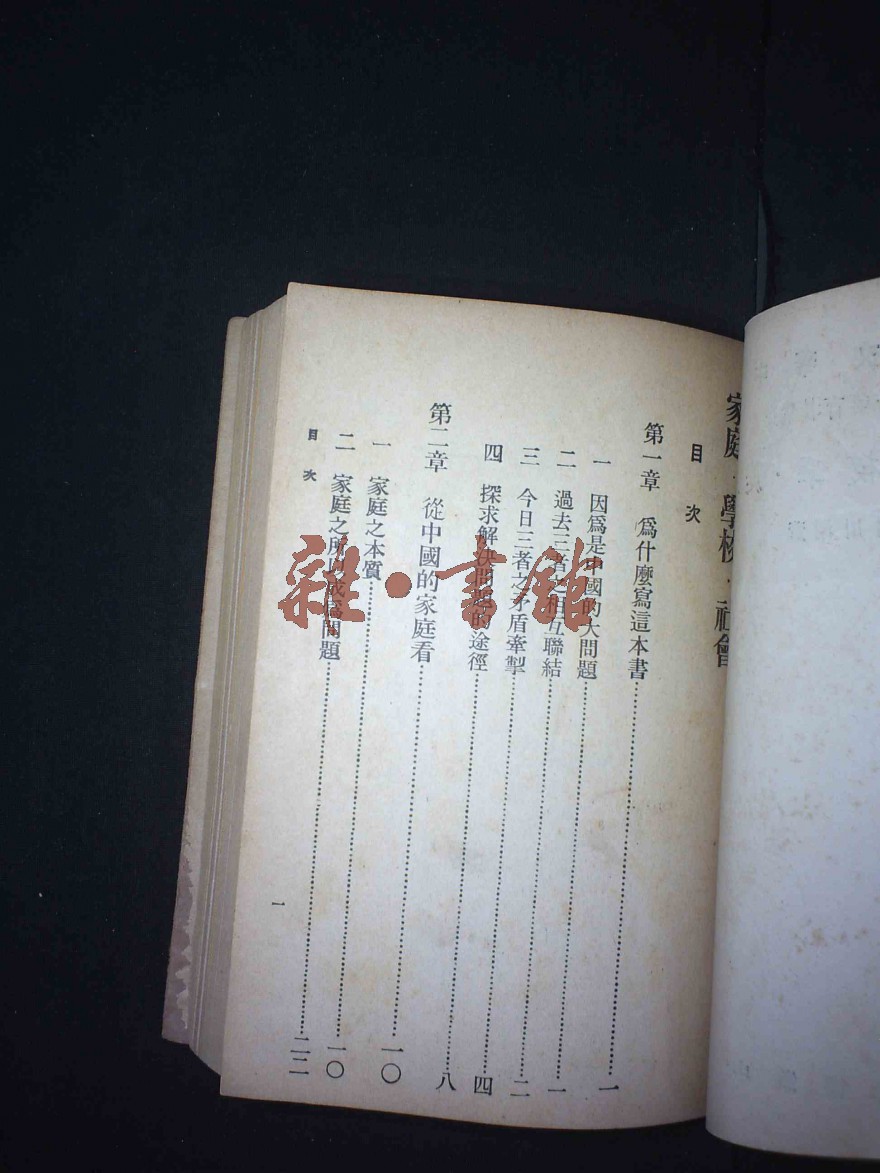 家庭·學校·社會
目次
第一章 爲什麼寫這本書……一
一 因爲是中國的大問題……一
二 過去三者之相互聯結……二
三 今日三者之矛盾牽掣……四
四 探求解決問題的途徑……八
第二章 從中國的家庭看……一〇
一 家庭之本質……一〇
二 家庭之所以成爲問題……二二
目次
一
雜·書館